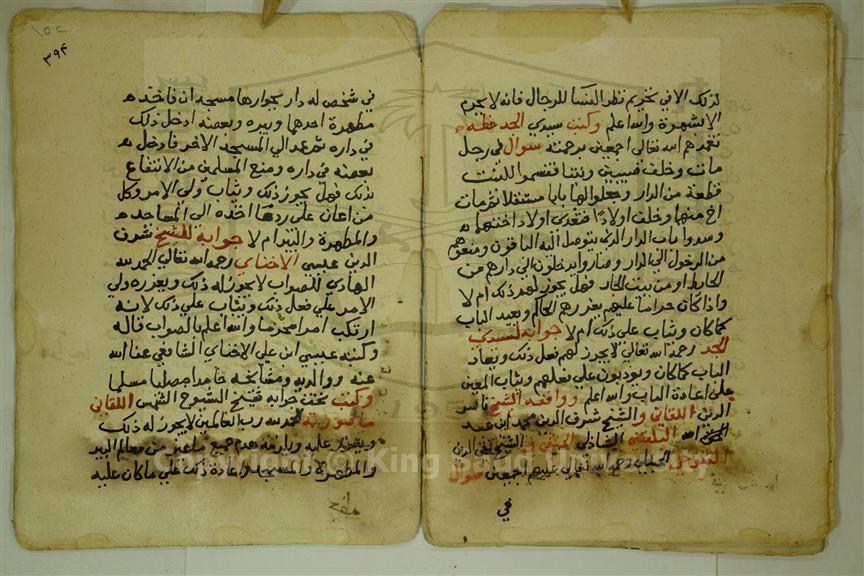 لذلك الا في تحريم نظر النسا للرجال فانه لا يحرم
الا بشهوة والله اعلم وكتب سيدي الجد حفظه
تغمدهم الله تعالى اجمعين برحمته سوال في رجل
مات وخلف صبيين وبنتا فقسموا للبنت
قطعة من الدار وجعلوا لها بابا مستقلا ثم مات
اخ منها وخلف اولادا فتعدى اولاد اختها
وسدوا باب الدار الذي يتوصل اليه الباقون ومنعوهم
من الدخول الى الدار وصاروا يدخلون الى دارهم من
الحايط او من بيت الجار فهل يجوز لهم ذلك ام لا
واذا كان حراما عليهم يعزرهم الحاكم ويعيد الباب
كما كان ويثاب على ذلك ام لا جوابه لسيدي
الجد رحمه الله تعالى لا يجوز لهم فعل ذلك ويعاد
الباب كما كان ويودبون على فعلهم ويثاب المعين
على اعادة الباب والله اعلم ووافقه الشيخ ناصر
الدين اللقاني والشيخ شرف الدين محمد ابن عبد
الله البلقيني الشاذلي الحنفي والشيخ تقي الدين
الفتوحي الحنبلي رحم الله تعالى عليهم اجمعين سوال
في
٣٩٤
في شخص له دار بجوارها مسجدان فاخذ
مطهرة احدهما وبيره وبعضه ادخل ذلك
في داره ثم عمد الى المسجد الاخر فادخل
بعضه في داره ومنع المسلمين من الانتفاع
بذلك فهل يجوز ذلك ويثاب ولي الامر وكل
من اعان على رد ما اخذه الى المساجد
والمطهرة والبير ام لا جوابه للشيخ شرف
الدين عيسى الاخناي رحمه الله تعالى الحمد لله
الهادي للصواب لا يجوز له ذلك ويعزره ولي
الامر على فعل ذلك ويثاب على ذلك لانه
ارتكب امرا محرما والله اعلم بالصواب قاله
وكتبه عيسى ابن علي الاخناي الشافعي عفا الله
عنه ووالديه ومشايخه حامدا مصليا مسلما
وكتب تحت جوابه شيخ الشيوخ الشمس اللقاني
ما صورته الحمد لله رب العالمين لا يجوز له ذلك
ويعزر عليه ويلزمه هدم جميع ما غير من معالم البير
والمطهرة والمسجد واعادة ذلك على ما كان عليه